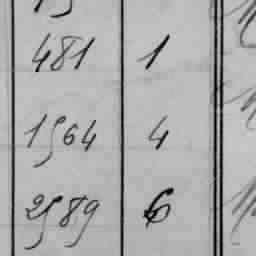 481 1
1564 4
2589 6